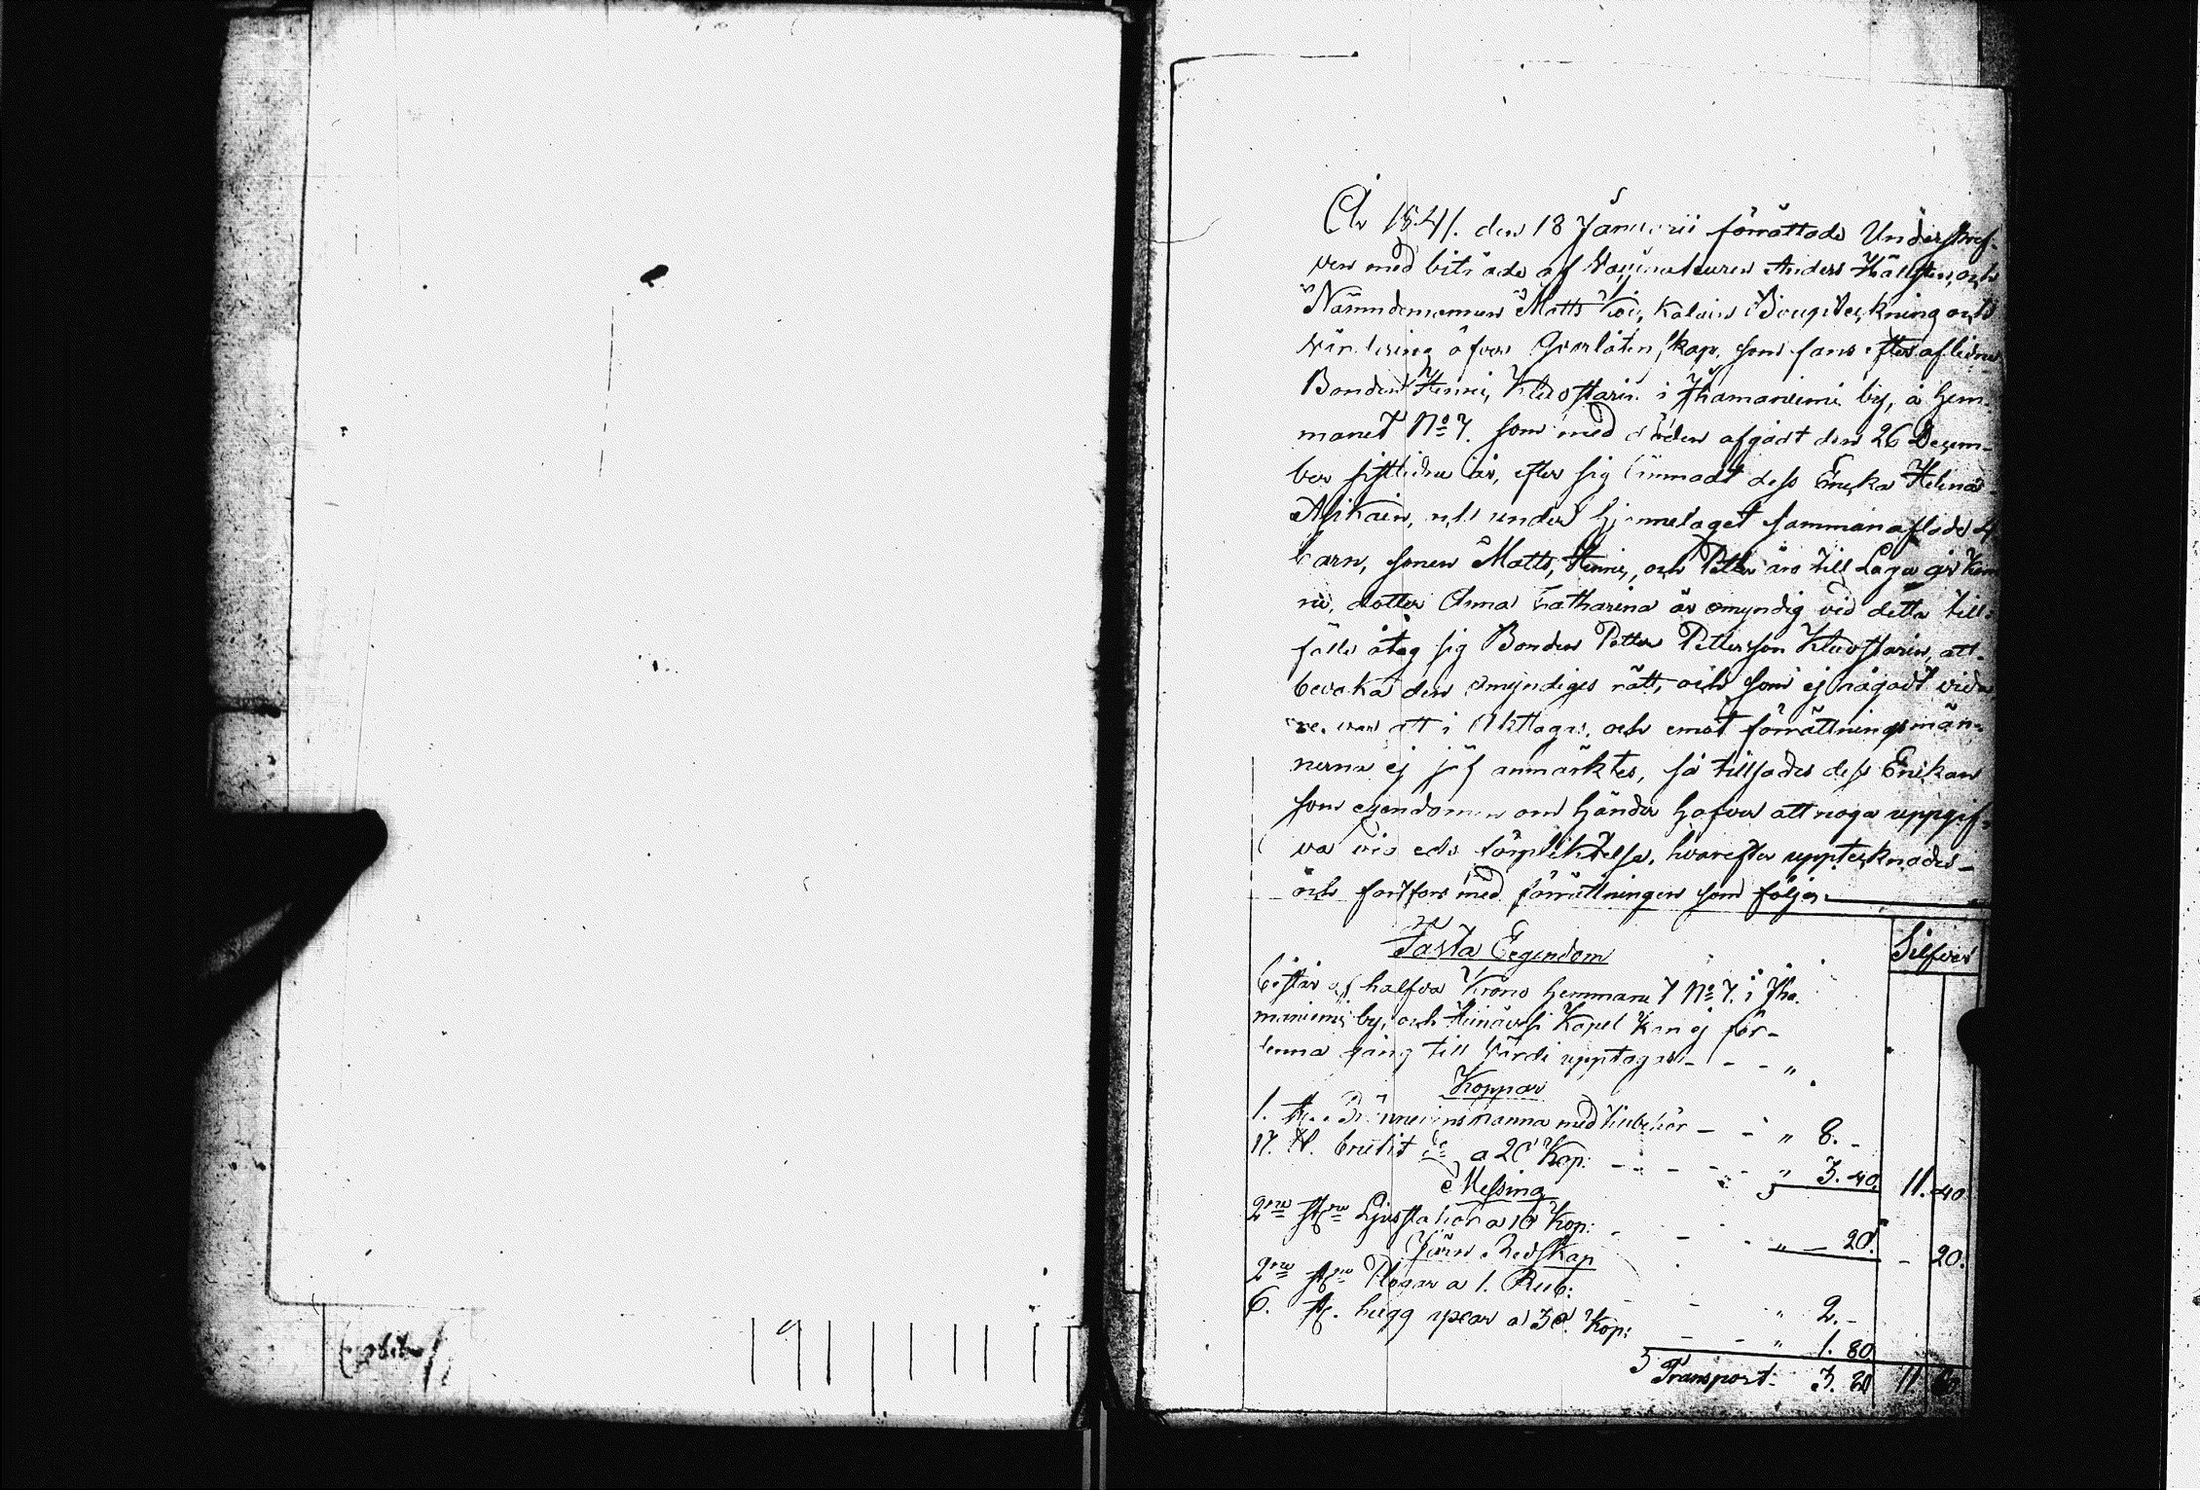 År 1841. den 18 Januarii förrättade Underskref-
ven med biträde af Vaccinateuren Anders Hällsten, och
Nämndemannen Matts Koi, Kalain Bougdteckning och
värdering öfver Qvarlåtenskap, som fans efter aflidne
Bonden Henric Kluostarin i Ihamaniemi by, å hem-
manet No 7. som med döden afgådt den 26 Decem-
ber sistlidne år, efter sig lämnadt dess Encka Helena
Asikain, och under hjonnelaget sammanaflade 4
barn, sonen Matts, Henric, och Petter äro till Laga år kom
ne, dotter Anna Catharina är omyndig vid detta till-
fälle åtog sig Bonden Petter Pettersson Kluostarin, att
bevaka den omyndiges rätt, och som ej någodt vida
re var att i Akttagas, och emot förrättningsmän-
nerna ej jäf anmärktes, så tillsades dess Enckan
som egendomen om händer hafver att noga uppgif-
va vid eds förpliktelse, hvarefter uppteknades
och fortfors med förrättningen som följer
Fasta Eegendom Silfver
består af halfva Krono hemmanet No 7. i Iha-
maniemi by, och Heinävesi Kapel kan ej för-
denna gång till värde upptagas - - - "
Koppar
1. st. Brännevinspanna med tilbehör - - " 8. -
17. ℔. brukit do a 20 Kop: - - - - - " 3. 40. 11. 40.
Messing
2ne stne Ljusstakar a 10 Kop: - - - " - 20. - 20.
Järn Redskap
2ne stne Plogar a 1. Rub: - - " 2. -
6. st. hugg yxar a 30 Kop: - - " 1. 80
Transport. 3. 80 11 60